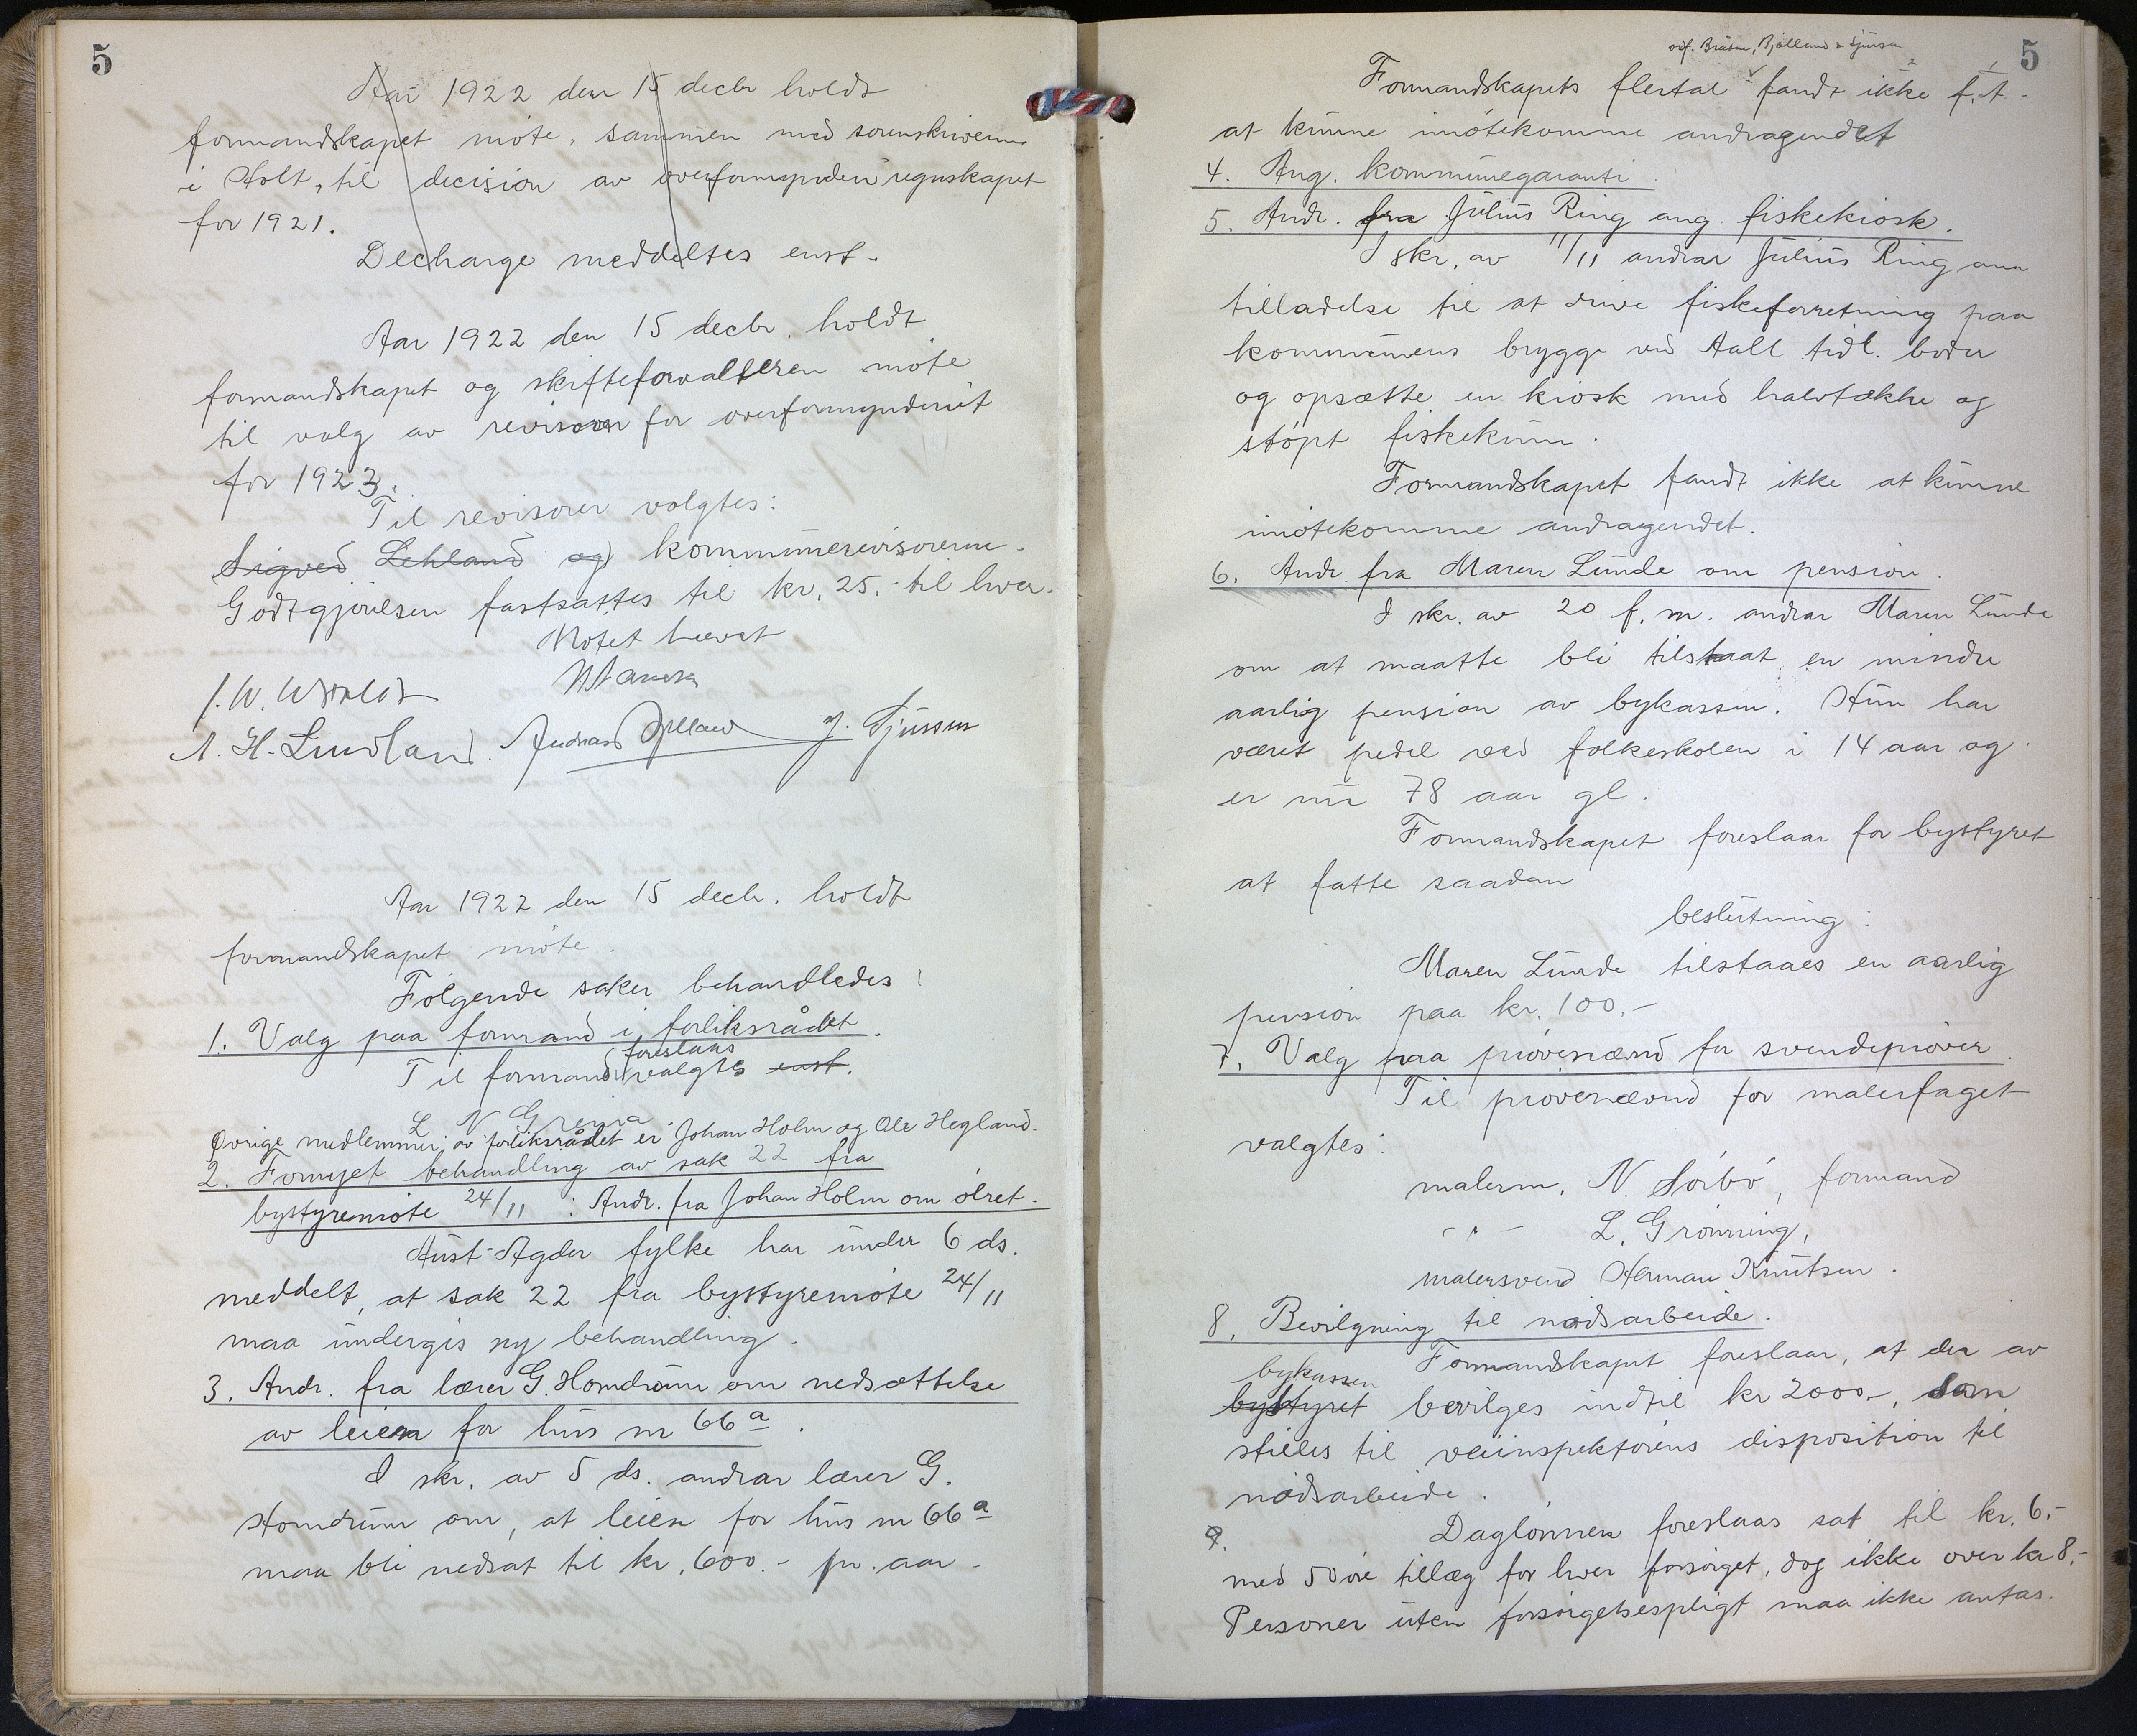 5
Aar 1922 den 15 decbr holdt
formandskapet möte, sammen med sorenskriveren
i Holt, til decision av overformynderiregnskapet
for 1921.
Decharge meddeltes enst.
Aar 1922 den 15 decbr. holdt
formandskapet og skifteforvalteren möte
til valg av revisorer for overformynderiet
for 1923.
Til revisorer valgtes:
Sigved Lehland og kommunerevisorerne.
Godtgjörelsen fastsattes til kr. 25.- til hver.
Mötet hævet
A. H. Lindland. Andreas J. Sjursen
Aar 1922 den 15 decbr. holdt
formandskapet möte.
Fölgende saker behandledes:
1. Valg paa formand i forliksrådet.
foreslaas
Til formand valgtes enst.
L N Grenra
Övrige medlemmer av forliksrådet er Johan Holm og Ole Hegland.
2. Fornyet behandling av sak 22 fra
bystyremöte 24/11 : Andr. fra Johan Holm om ölret.
Aust-Agder fylke har under 6 ds.
meddelt, at sak 22 fra bystyremöte 24/11
maa undergis ny behandling.
3. Andr. fra lærer G. Homdrum om nedsættelse
av leien for hus nr 66 a.
I skr. av 5 ds. andrar lærer G.
Homdrum om, at leien for hus nr 66 a
maa bli nedsat til kr. 600.- pr. aar.
5
Bjelland & Sjursen
Formandskapets flertal fandt ikke f.t.
at kunne imötekomme andragendet
4. Ang. kommunegaranti.
5. Andr. fra Julius Ring ang. fiskekiosk.
I skr. av 11/11 andrar Julius Ring om
tilladelse til at drive fiskeforretning paa
kommunens brygge ved Aall tidl. boder
og opsætte en kiosk med halvtække og
stöpt fiskekum.
Formandskapet fandt ikke at kunne
imötekomme andragendet.
6. Andr. fra Maren Lunde om pension.
I skr. av 20 f. m. andrar Maren Lunde
om at maatte bli tilstaat en mindre
aarlig pension av bykassen. Hun har
været pedel ved folkeskolen i 14 aar og
er nu 78 aar gl.
Formandskapet foreslaar for bystyret
at fatte saadan
beslutning:
Maren Lunde tilstaaes en aarlig
pension paa kr. 100.-
7. Valg paa prövenævnd for svendepröver.
Til prövenævnd for malerfaget
valgtes:
malerm. N. Sörbö, formand
- " - L. Grönning,
malersvend Herman Knutsen.
8. Bevilgning til nödsarbeide.
Formandskapet foreslaar, at der av
bykassen
bystyret bevilges indtil kr 2000.-, som
stilles til veiinspektörens disposition til
nödsarbeide.
9.
Daglönnen foreslaas sat til kr. 6.-
med 50 öre tillæg for hver forsörget, dog ikke over kr 8.-
Personer uten forsörgelsespligt maa ikke antas.